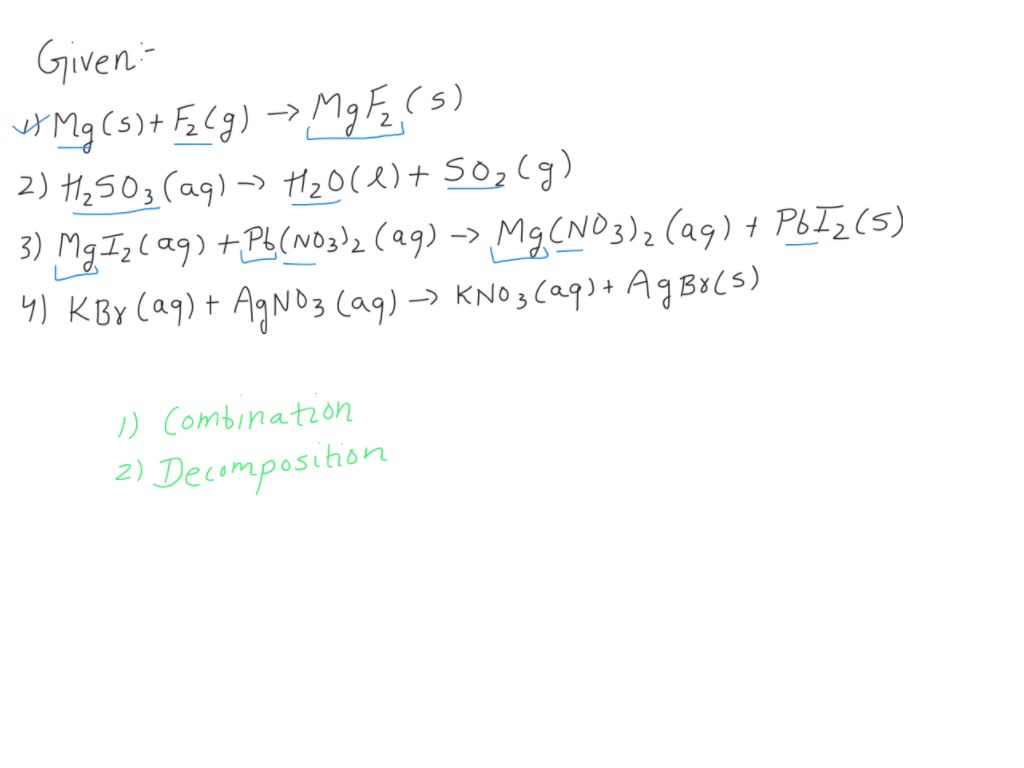 Given:-
1) Mg(s) + F₂(g) → MgF₂(s)
2) H₂SO₃(aq) → H₂O(l) + SO₂(g)
3) MgI₂(aq) + Pb(NO₃)₂(aq) → Mg(NO₃)₂(aq) + PbI₂(s)
4) KBr(aq) + AgNO₃(aq) → KNO₃(aq) + AgBr(s)
1) Combination
2) Decomposition